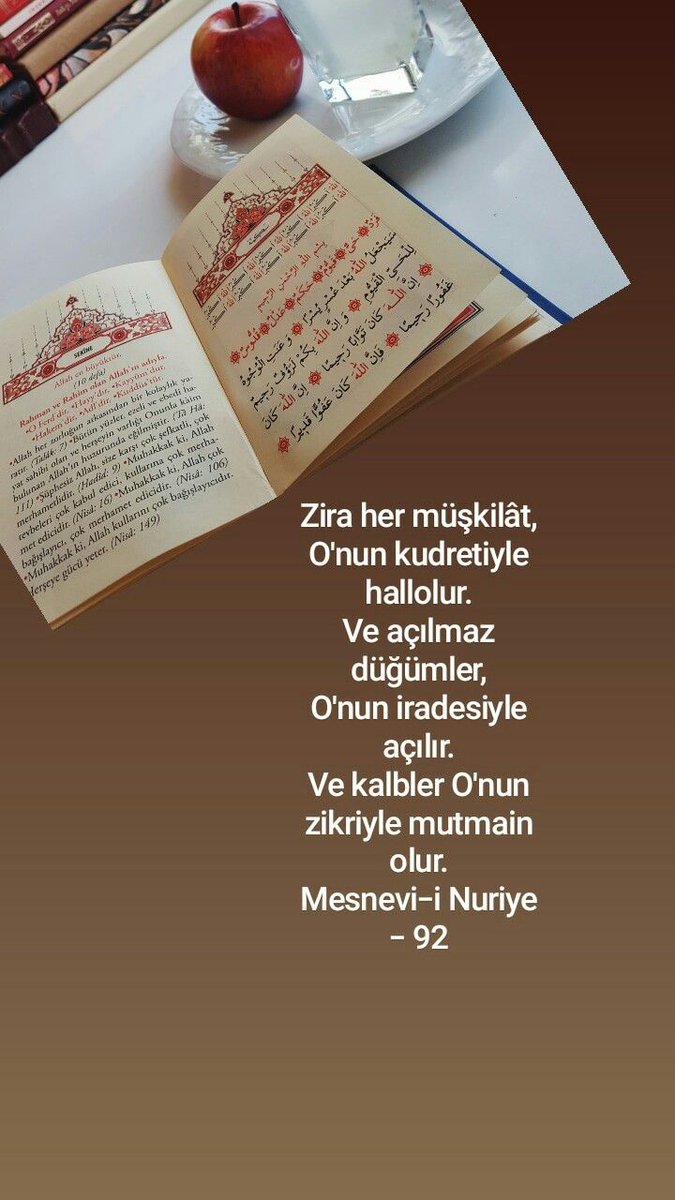 SEKİNE
Allah en büyüktür.
(10 defa)
Rahman ve Rahîm olan Allah'ın adıyla.
•O Ferd'dir. •Hayy'dır. •Kayyûm'dur.
•Hakem'dir. •Adl'dir. •Kuddüs'tür.
•Allah her zorluğun arkasından bir kolaylık ya-
ratır. (Talâk: 7) •Bütün yüzler, ezelî ve ebedî ha-
yat sahibi olan ve herşeyin varlığı Onunla kâim
bulunan Allah'ın huzurunda eğilmiştir. (Tâ Hâ:
111) •Şüphesiz Allah, size karşı çok şefkatli, çok
merhametlidir. (Hadîd: 9) •Muhakkak ki, Allah
tevbeleri çok kabul edici, kullarına çok merha-
met edicidir. (Nisâ: 16) •Muhakkak ki, Allah çok
bağışlayıcı, çok merhamet edicidir. (Nisâ: 106)
•Muhakkak ki, Allah kullarını çok bağışlayıcıdır.
herşeye gücü yeter. (Nisâ: 149)
بِسْمِ اللّٰهِ الرَّحْمٰنِ الرَّحِيمِ
فَرْدٌ حَىٌّ قَيُّومٌ حَكَمٌ عَدْلٌ قُدُّوسٌ
سَيَجْعَلُ اللّٰهُ بَعْدَ عُسْرٍ يُسْرًا وَعَنَتِ الْوُجُوهُ
لِلْحَىِّ الْقَيُّومِ وَاِنَّ اللّٰهَ بِكُمْ لَرَؤُفٌ رَحِيمٌ
اِنَّ اللّٰهَ كَانَ تَوَّابًا رَحِيمًا اِنَّ اللّٰهَ كَانَ
غَفُورًا رَحِيمًا فَاِنَّ اللّٰهَ كَانَ عَفُوًّا قَدِيرًا
Zira her müşkilât,
O'nun kudretiyle
hallolur.
Ve açılmaz
düğümler,
O'nun iradesiyle
açılır.
Ve kalbler O'nun
zikriyle mutmain
olur.
Mesnevi-i Nuriye
- 92